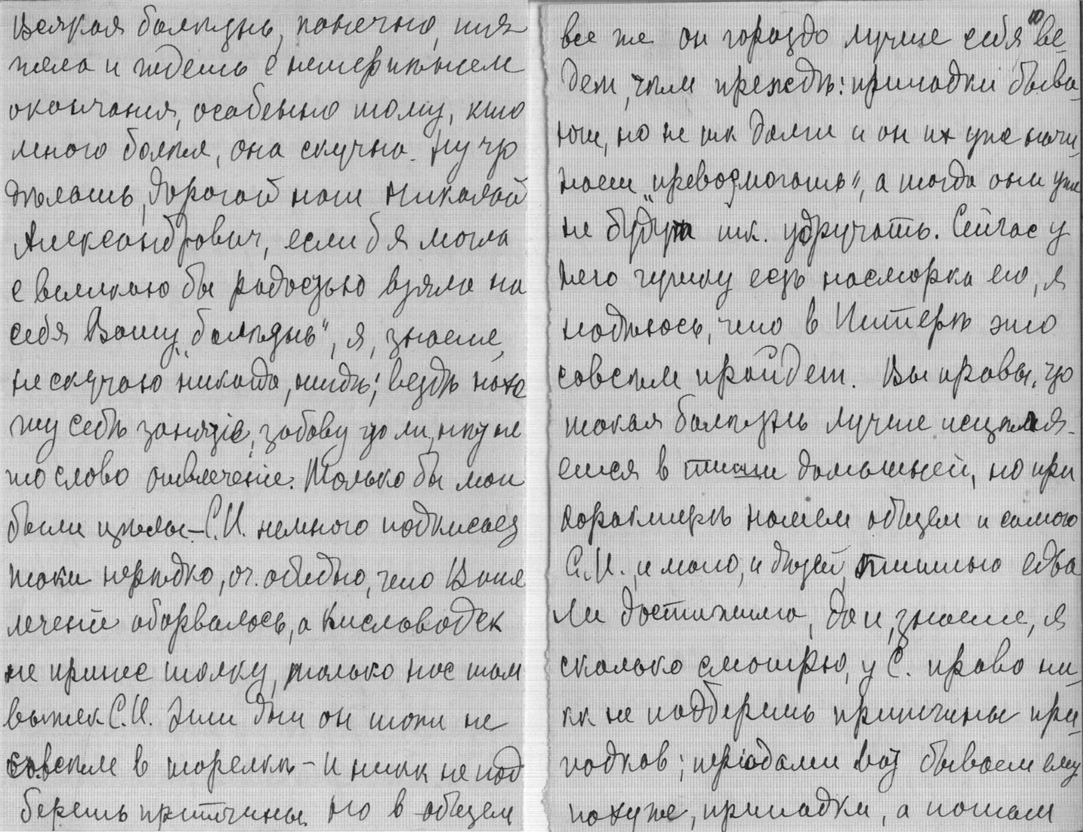 Всякая болѣзнь, конечно, тя
жела и ждешь с нетерпѣнiем
окончания, особенно тому, кто
много болѣл, она скучна. Ну что
дѣлать, дорогой наш Николай
Александрович, если б я могла
с великою бы радостью взяла на
себя Вашу „болѣзнь", я, знаете,
не скучаю никогда, нигдѣ; вездѣ нахо
жу себѣ занятiе, забаву что ли,
то слово отвлеченiе. Только бы мои
были цѣлы – С.И. немного подкисает
таки нерѣдко, оч. обидно, что Ваше
леченiе оборвалось, а Кисловодск
не принес толку, только нос там
вытек С.И. Эти дни он таки не
совсѣм в тарелкѣ – и никак не под
берешь притчины. Но в общем
все же он гораздо лучше себя ве-
дет, чѣм преждѣ: припадки быва-
ют, но не так долги и он их уже начи
нает „превозмогать", а тогда они уже
не будут так удручать. Сейчас у
него гущику есть насморка его, я
надѣюсь, что в Питерѣ это
совсѣм пройдет. Вы правы, что
такая болѣзнь лучше исцѣля-
ется в тиши домашней, но при
характерѣ нашем общем и самого
С.И., и мою, и дѣтей, тишина едва
ли достижима, да и, знаете, я
сколько смотрю, у С. право ни-
как не подберешь притчины при-
падков; перiодами вот бывает ему
похуже, припадки, а потом